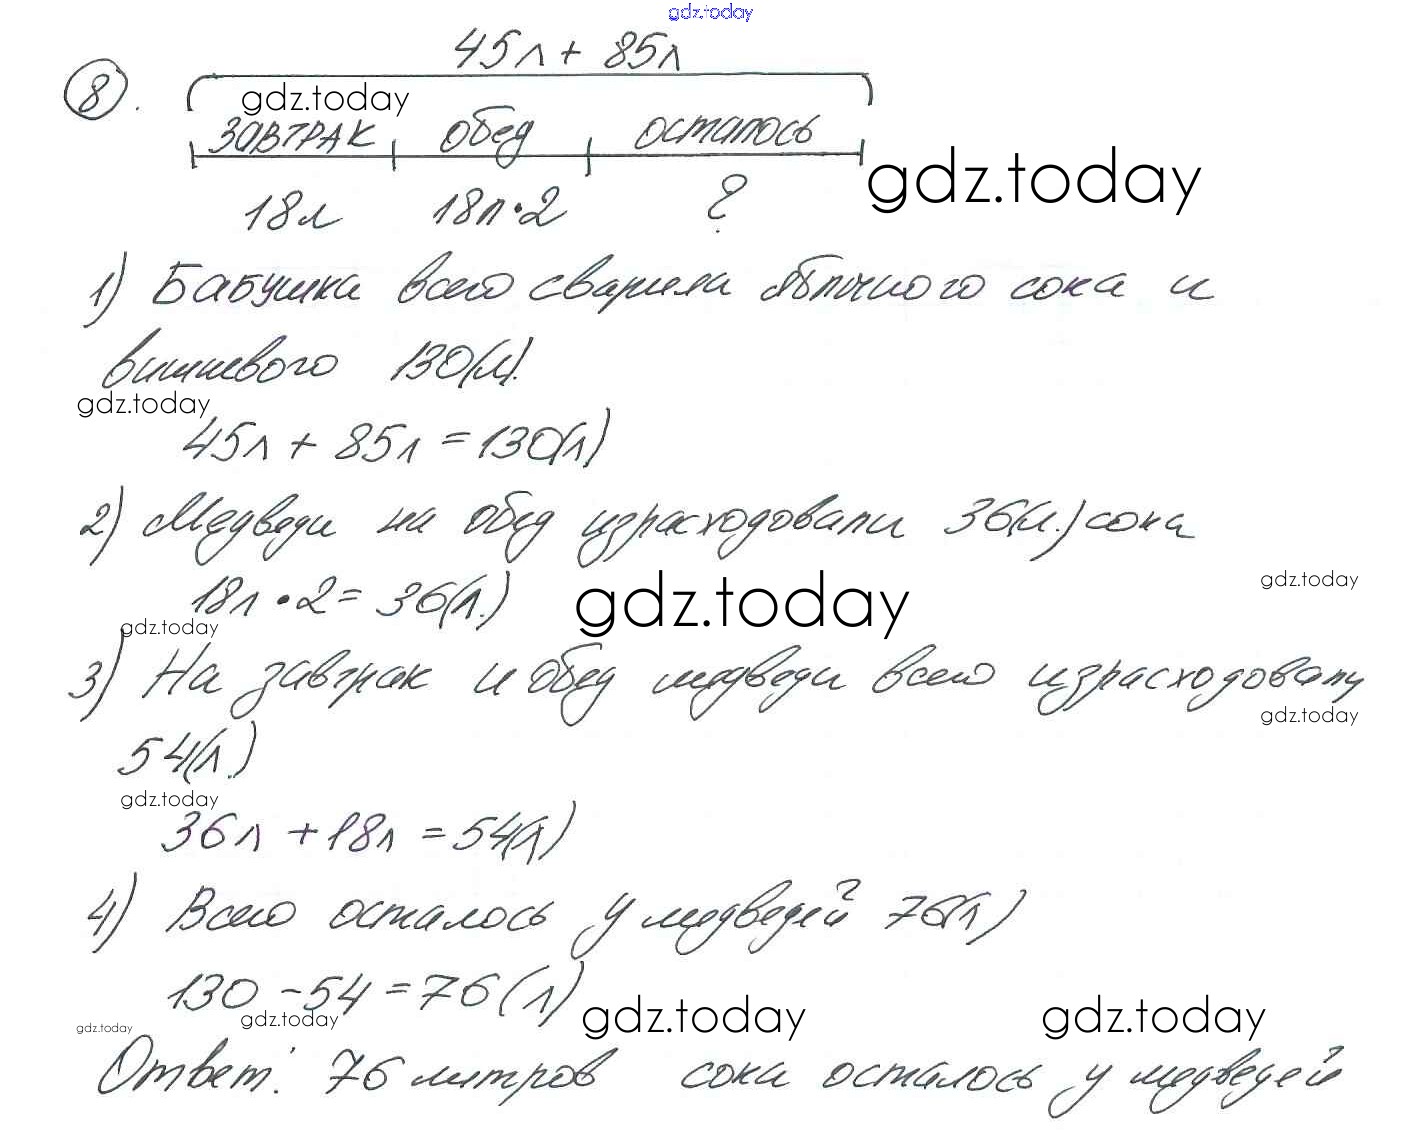 gdz.today
45л + 85л
8.
gdz.today
завтрак обед осталось
gdz.today
18л 18л·2 ?
1) Бабушка всего сварила яблочного сока и
вишневого 130(л).
gdz.today
45л + 85л = 130(л)
2) Медведи на обед израсходовали 36(л.) сока
gdz.today
18л·2 = 36(л.)
gdz.today
gdz.today
3) На завтрак и обед медведи всего израсходовали
gdz.today
54(л.)
gdz.today
36л + 18л = 54(л)
4) Всего осталось у медведей 76(л)
130 - 54 = 76 (л)
gdz.today gdz.today gdz.today gdz.today
Ответ: 76 литров сока осталось у медведей